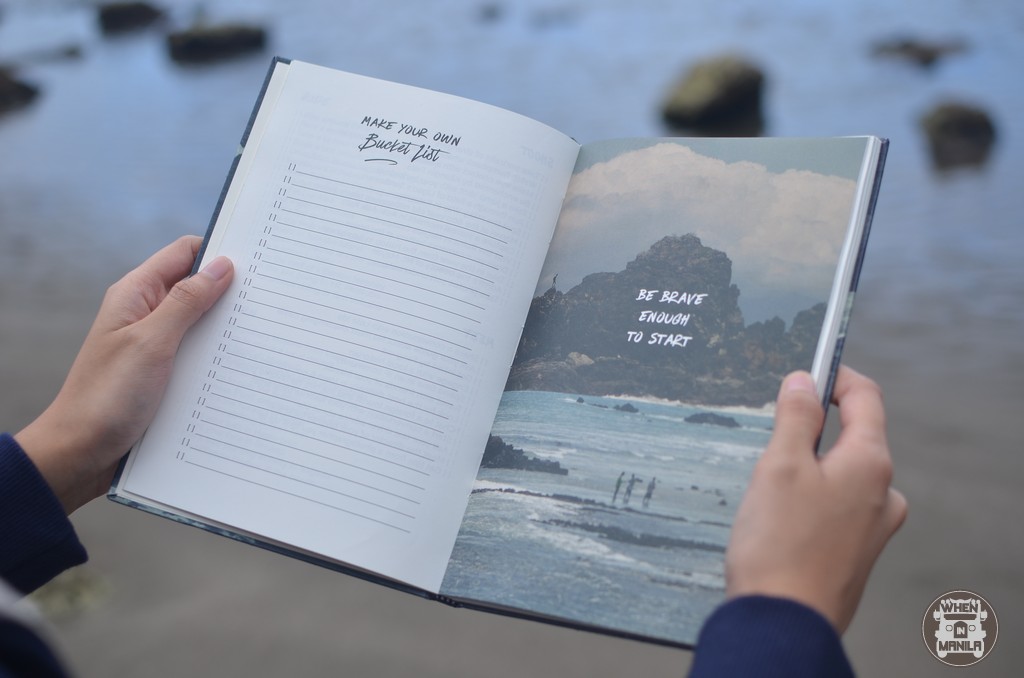 MAKE YOUR OWN
Bucket List
BE BRAVE
ENOUGH
TO START
WHEN
IN
MANILA